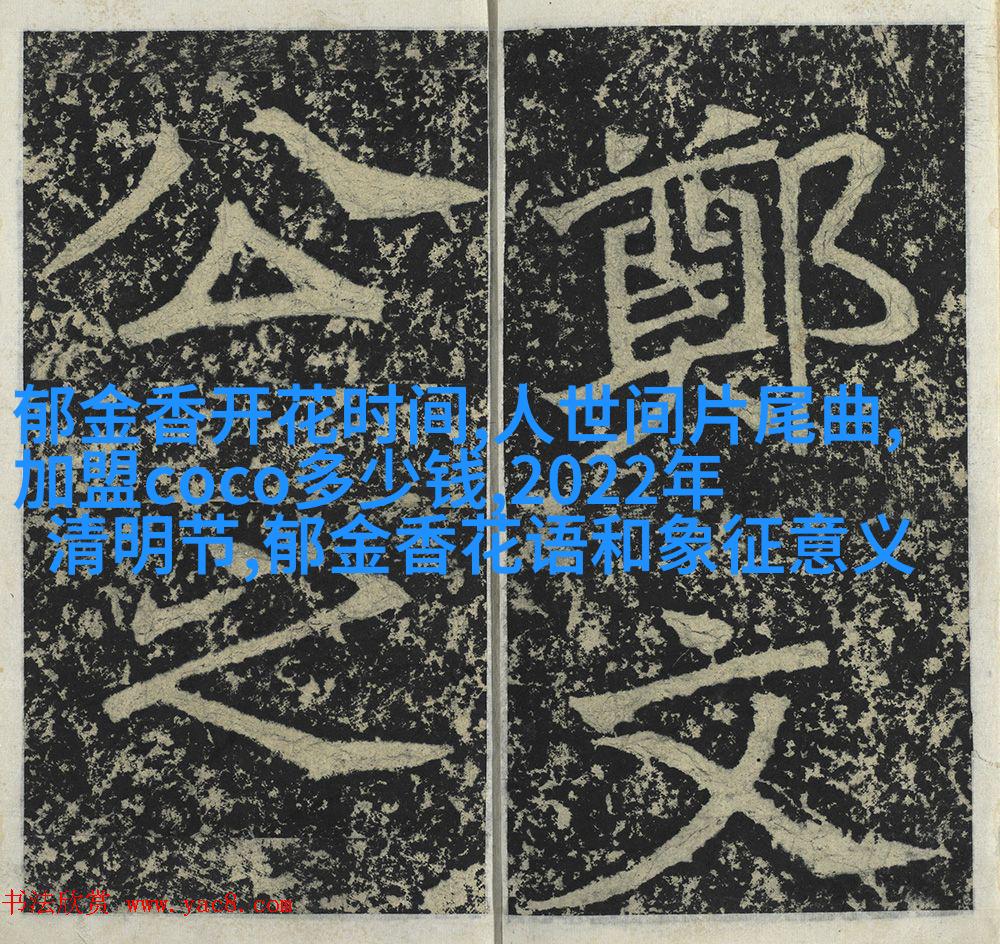 鄭文
公之
郁金香开花时间,人世间片尾曲,
加盟coco多少钱,2022年
清明节,郁金香花语和象征意义
书法欣赏 www.yac8.com